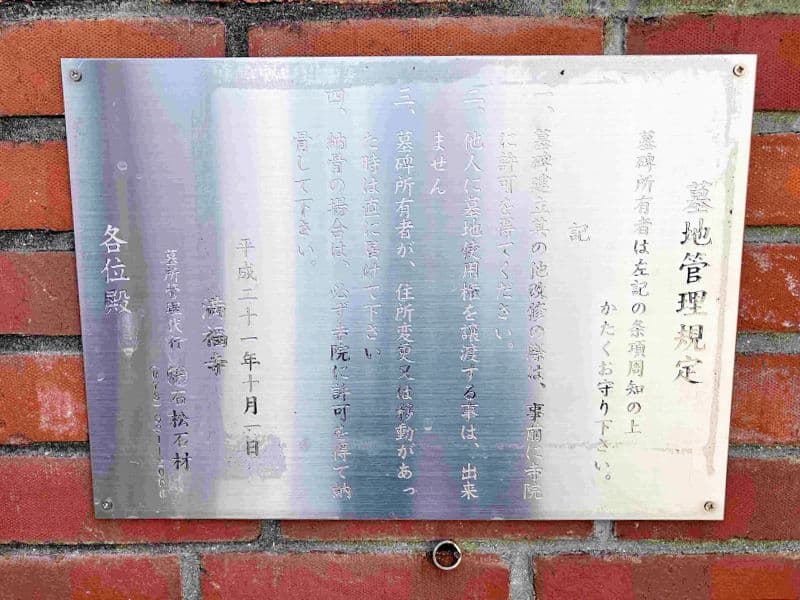 墓地管理規定
墓碑所有者は左記の条項周知の上
かたくお守り下さい。
記
一、墓碑建立其の他改修の際は、事前に寺院
に許可を得てください。
二、他人に墓地使用権を譲渡する事は、出来
ません
三、墓碑所有者が、住所変更又は移動があっ
た時は直に届けて下さい
四、納骨の場合は、必ず寺院に許可を得て納
骨して下さい。
平成二十一年十月一日
満福寺
墓所管理代行 石松石材
各位殿